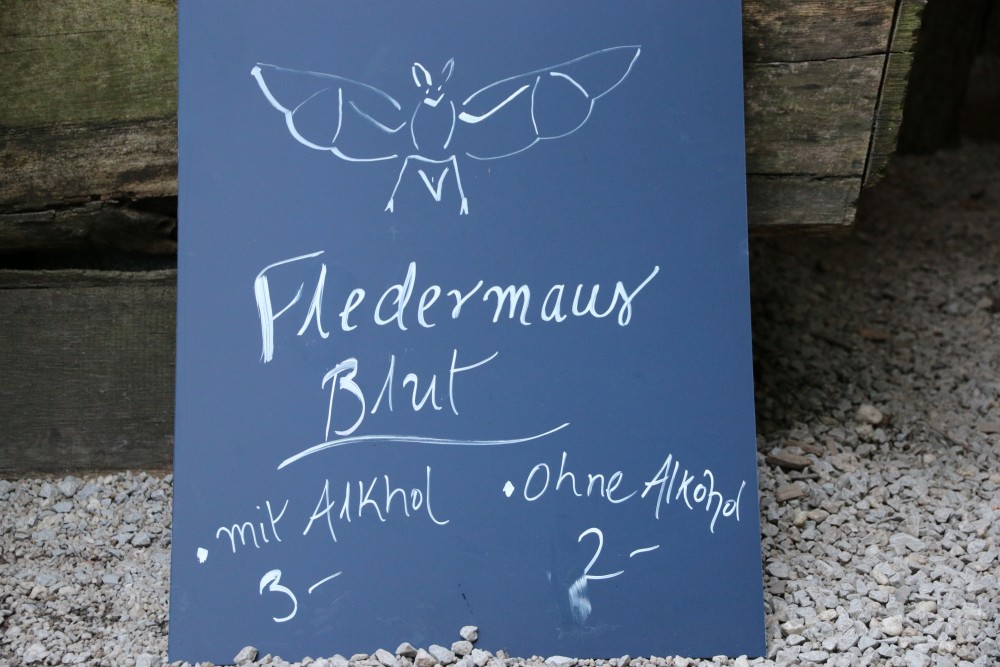 Fledermaus
Blut
• mit Alkhol
3 –
• Ohne Alkohol
2 –